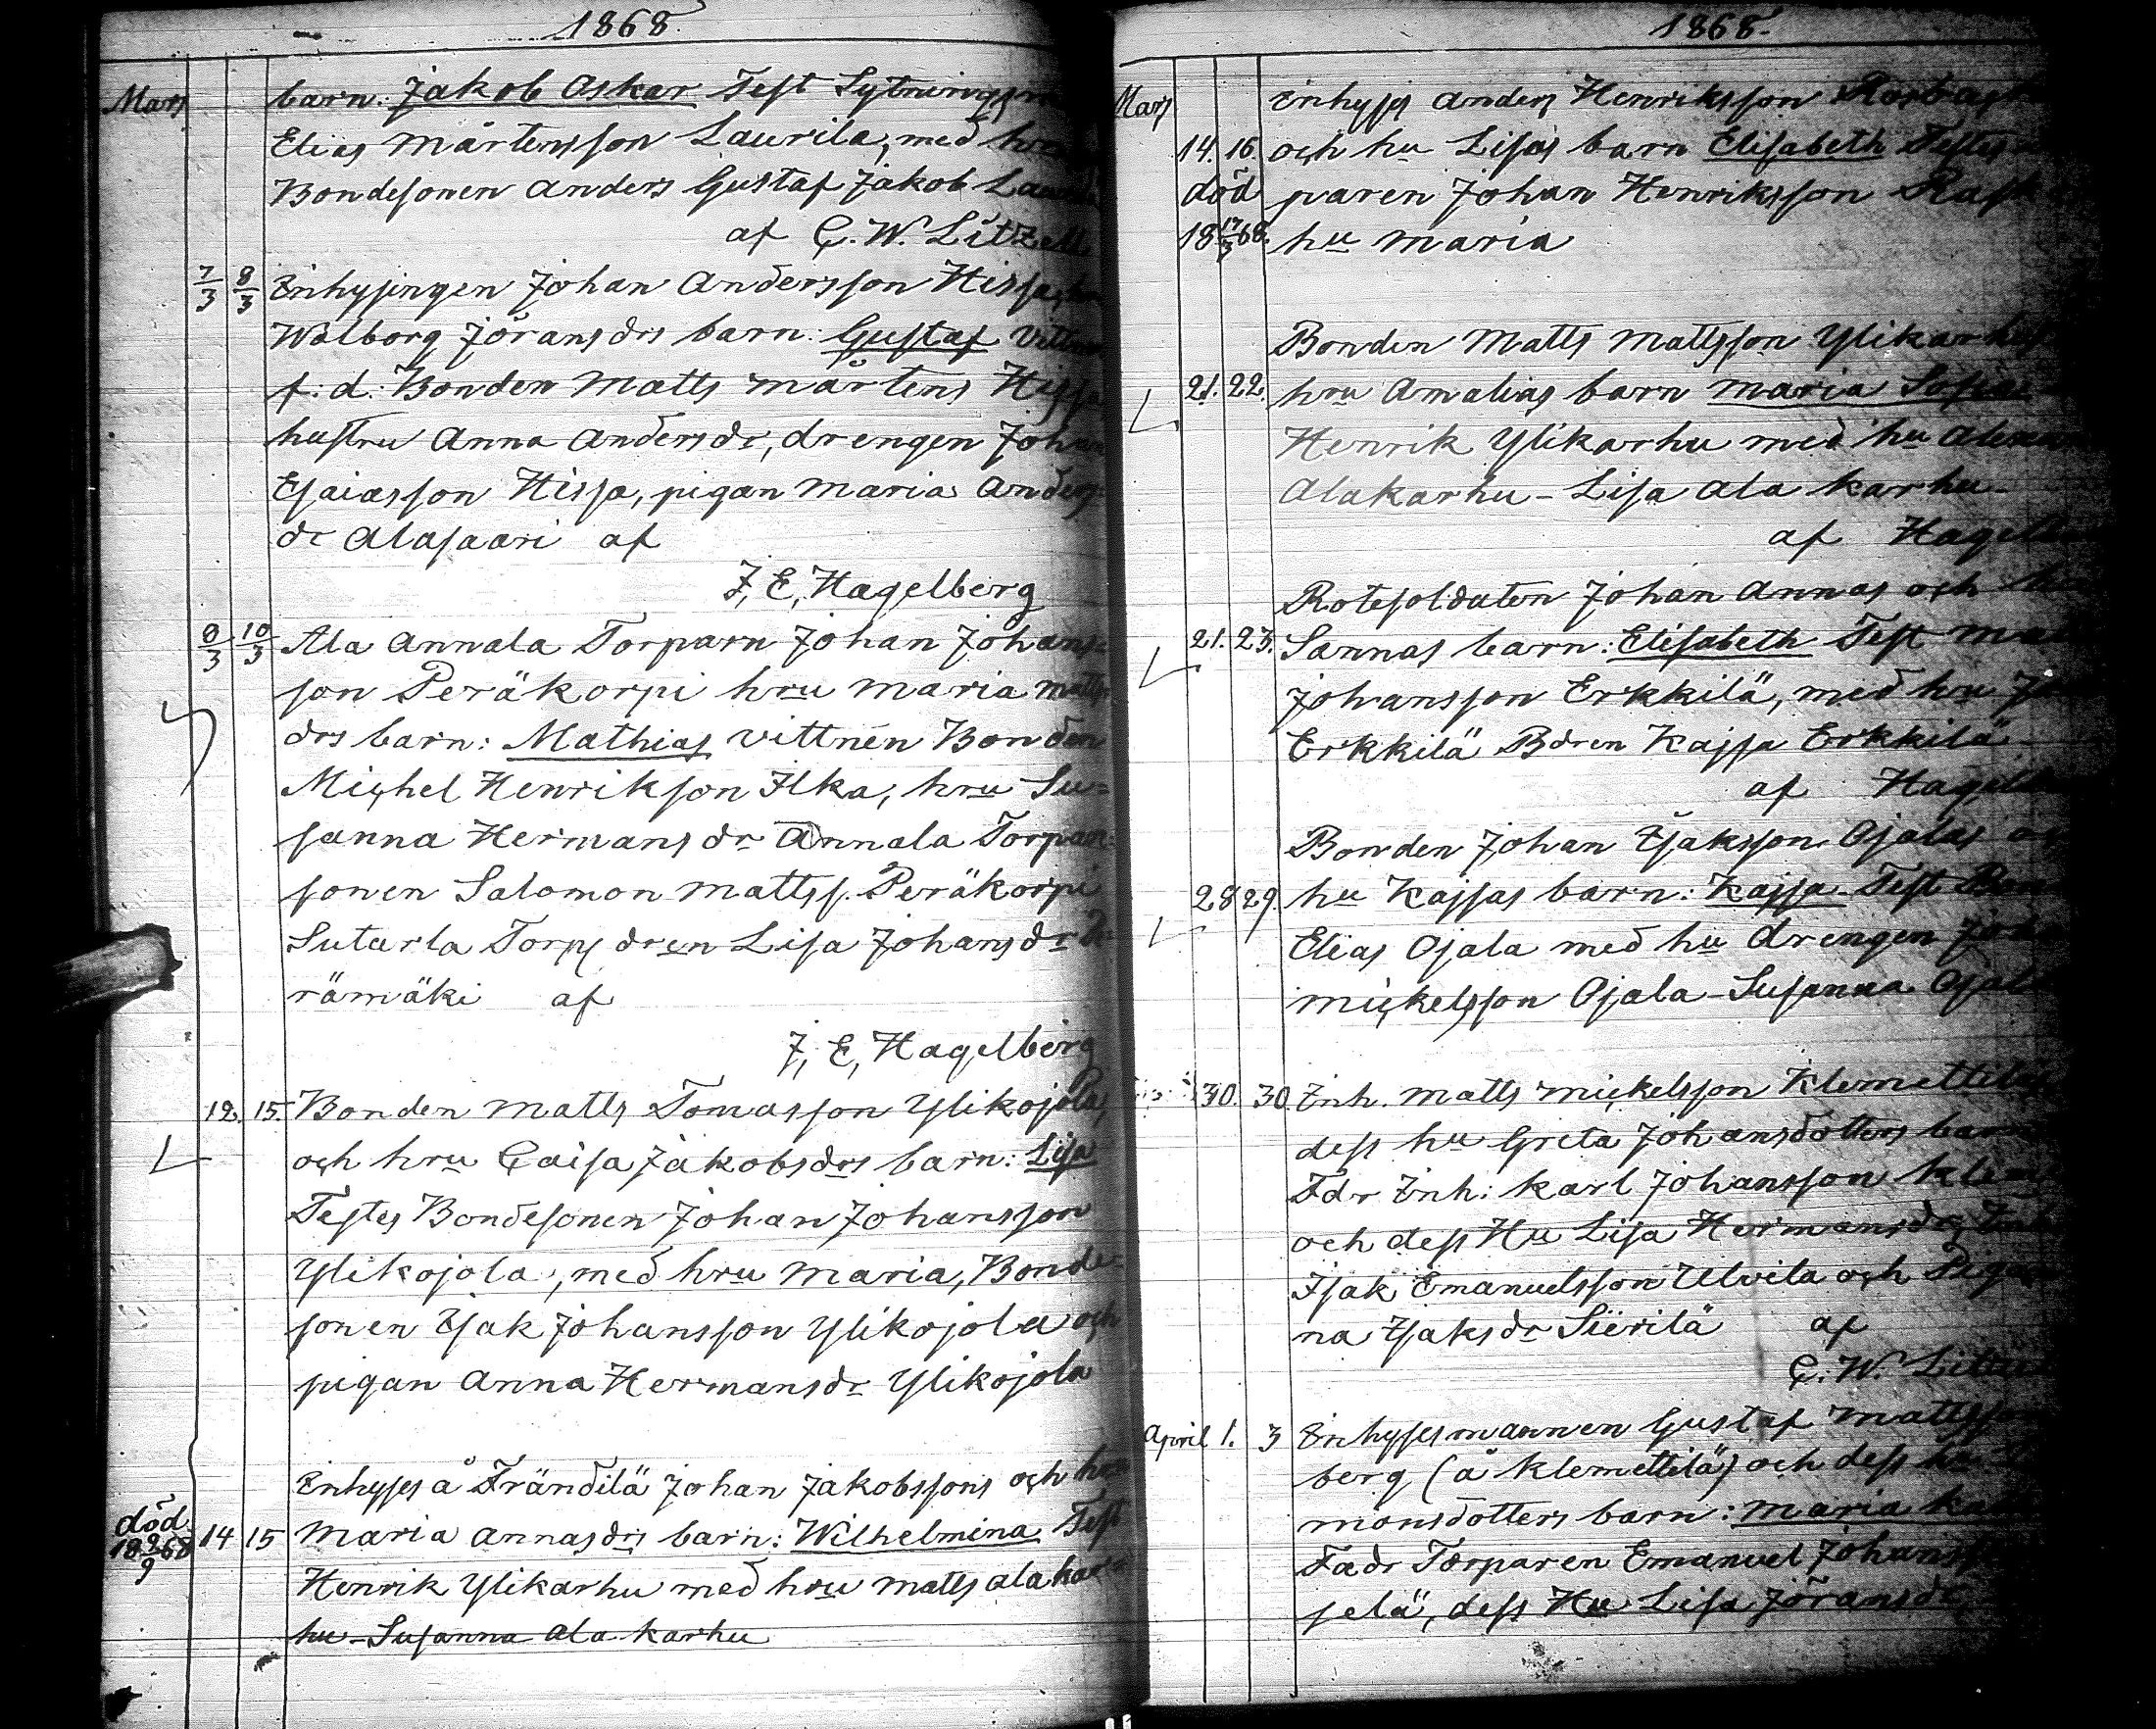 1868.
Mars
barn: Jakob Oskar Test Sytnings
Elias Mårtensson Laurila, med hru
Bondesonen Anders Gustaf Jakob
af C. W. Litzell
7/3 8/3 Inhysingen Johan Andersson Hissa,
Wålborg Jöransdrs barn: Gustaf
f: d: Bonden Matts Mårtens Hissa
hustru Anna Andersdr, drengen Johan
Esaiasson Hissa, pigan Maria Anders=
dr Alasaari af
J, E, Hagelberg
8/3 10/3 Ala Annala Torparn Johan Johans=
son Peräkorpi hru Maria Matts
drs barn: Mathias vittnen Bonden
Michel Henrikson Ilka, hru Su=
sanna Hermansdr Annala Torpar=
sonen Salomon Mattss. Peräkorpi
Sutarla Torps dren Lisa Johansdr
rämäki af
J, E, Hagelberg
12. 15. Bonden Matts Tomasson Ylikojola,
och hru Caisa Jakobsdrs barn: Lisa
Testes Bondesonen Johan Johansson
Ylikojola, med hru Maria, Bonde=
sonen Isak Johansson Ylikojola och
pigan Anna Hermansdr Ylikojola
Inhyses å Frändilä Johan Jakobssons och hru
död 18 9/9 68 14 15 Maria Annasdrs barn: Wilhelmina Test
Henrik Ylikarhu med hru Matts Alakar
hu - Susanna Ala karhu
1868.
Mars
Inhyses Anders Henriksson
14. 16. och hu Lisas barn Elisabeth Testes
död paren Johan Henriksson
18 17/3 68. hu Maria
Bonden Matts Mattsson Ylikarhus
21. 22. hru Amalias barn Maria Sofia
Henrik Ylikarhu med hu
Alakarhu - Lisa Ala karhu -
af Hagelberg
Rotesoldaten Johan Annas och
21. 23. Sannas barn: Elisabeth Test
Johansson Erkkilä, med hru
Erkkilä Bdren Kajsa Erkkilä
af Hagelberg
Bonden Johan Isaksson Ojalas
28 29. hu Kajsas barn: Kajsa Test
Elias Ojala med hu drengen
Mickelsson Ojala - Susanna Ojala
30. 30. Inh. Matts Mickelsson
dess hu Greta Johansdotters barn
Fdr Inh: Karl Johansson
och dess Hu Lisa Hermansdr,
Isak Emanuelsson Ulvila och
na Isaksdr Sierilä af
C. W. Litzell
April 1. 3 Inhysesmannen Gustaf Mattsson
berg (å Klemettilä) och dess hu
monsdotters barn: Maria
Fadr Torparen Emanuel
selä, dess Hu Lisa Jöransdr